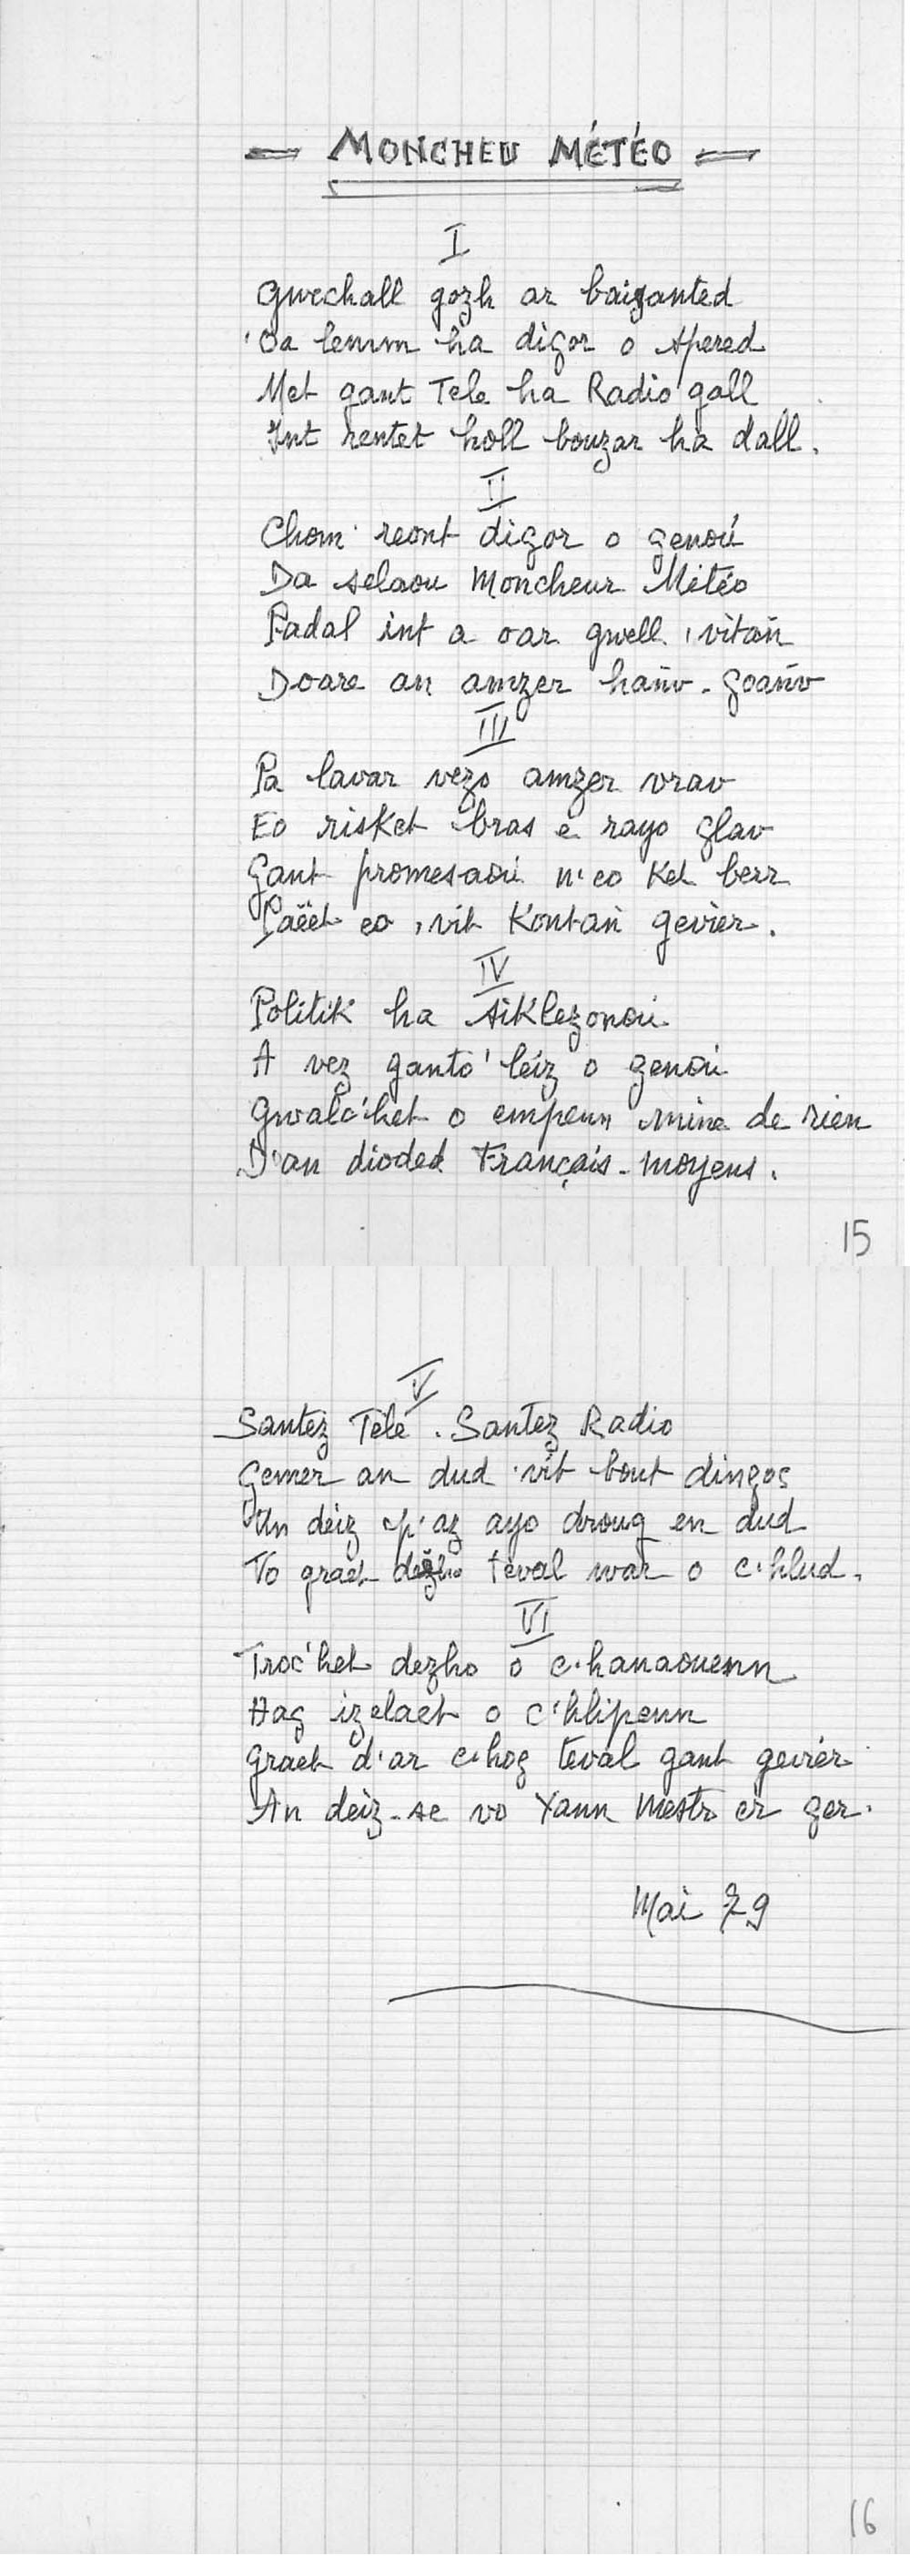 — MONCHEU MÉTÉO —
I
Gwechall gozh ar baizanted
'Oa lemm ha digor o spered
Met gant Tele ha Radio gall
Int rentet holl bouzar ha dall.
II
Chom' reont digor o genoù
Da selaou Moncheur Météo
Padal int a oar gwell 'vitañ
Doare an amzer hañv-goañv
III
Pa lavar vezo amzer vrav
Eo risket bras e rayo glav
Gant promesaoù n'eo ket berr
Paëet eo 'vit kontañ gevier.
IV
Politik ha siklezonoù
A vez ganto' leiz o genoù
Gwalc'het o empenn mine de rien
D'an dioded Français-moyens.
15
V
Santez Télé. Santez Radio
Gemer an dud 'vit bout dingos
Un deiz p'az ayo droug en dud
Vo graet dezho teval war o c'hlud.
VI
Troc'het dezho o c'hanaouenn
Hag izelaet o c'hlipenn
Graet d'ar c'hog teval gant gevier
An deiz-se vo Yann Mestr er ger.
Mai 79
16